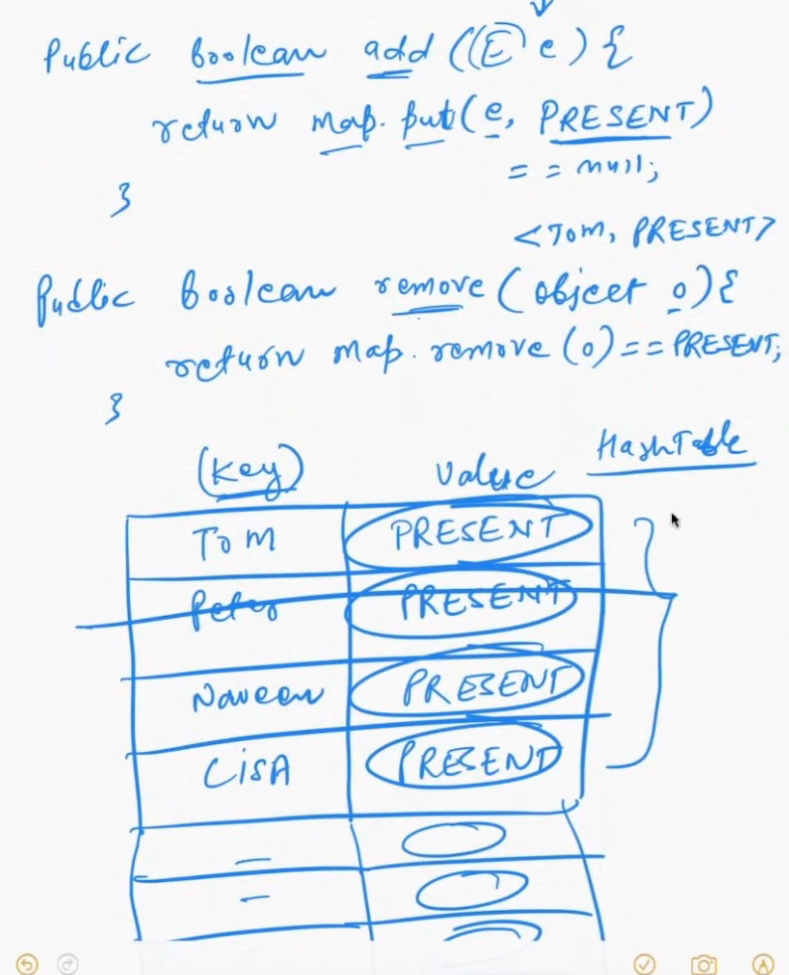 Public boolean add ((E) e) {
return map.put(e, PRESENT)
== null;
}
<Tom, PRESENT>
Public Boolean remove (object o){
return map.remove(o)==PRESENT;
}
HashTable
(Key) Value
Tom PRESENT
Peter PRESENT
Naveen PRESENT
LisA PRESENT